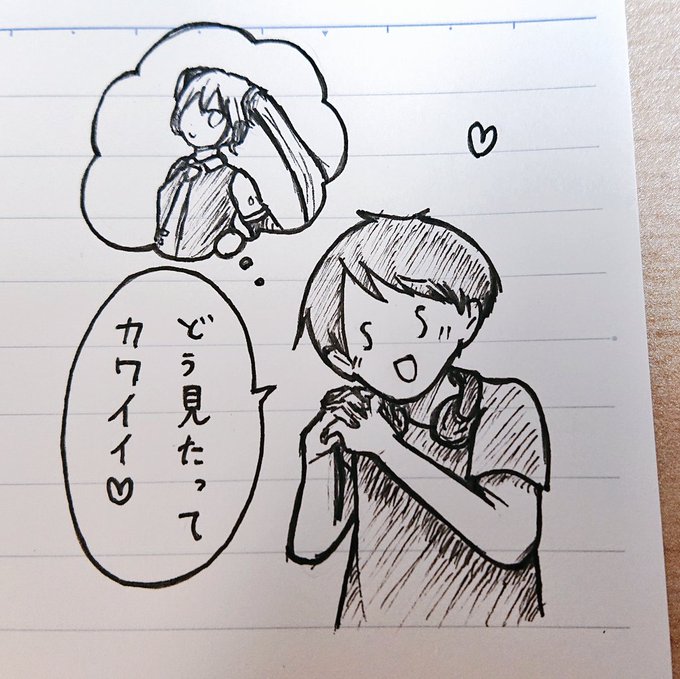 どう見たって
カワイイ♡